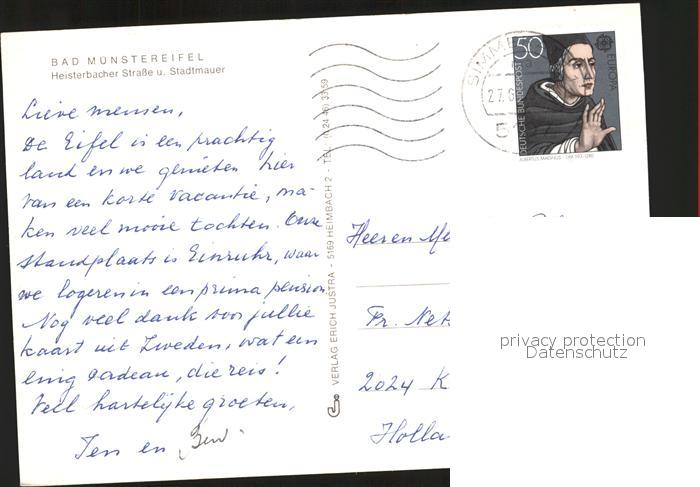 BAD MÜNSTEREIFEL
Heisterbacher Straße u. Stadtmauer
Lieve mensen,
De Eifel is een prachtig
land en we genieten hier
van een korte vacantie, ma-
ken veel mooie tochten. Onze
standplaats is Einruhr, waar
we logeren in een prima pension
Nog veel dank voor jullie
kaart uit Zweden, wat een
enig cadeau, die reis!
Veel hartelijke groeten,
Jen en
VERLAG ERICH JUSTRA - 5169 HEIMBACH 2 - TEL.
SIMME
27.6
50
DEUTSCHE BUNDESPOST
EUROPA
ALBERTUS MAGNUS
Heeren
Fr. Net
2024 K
Holla
privacy protection
Datenschutz